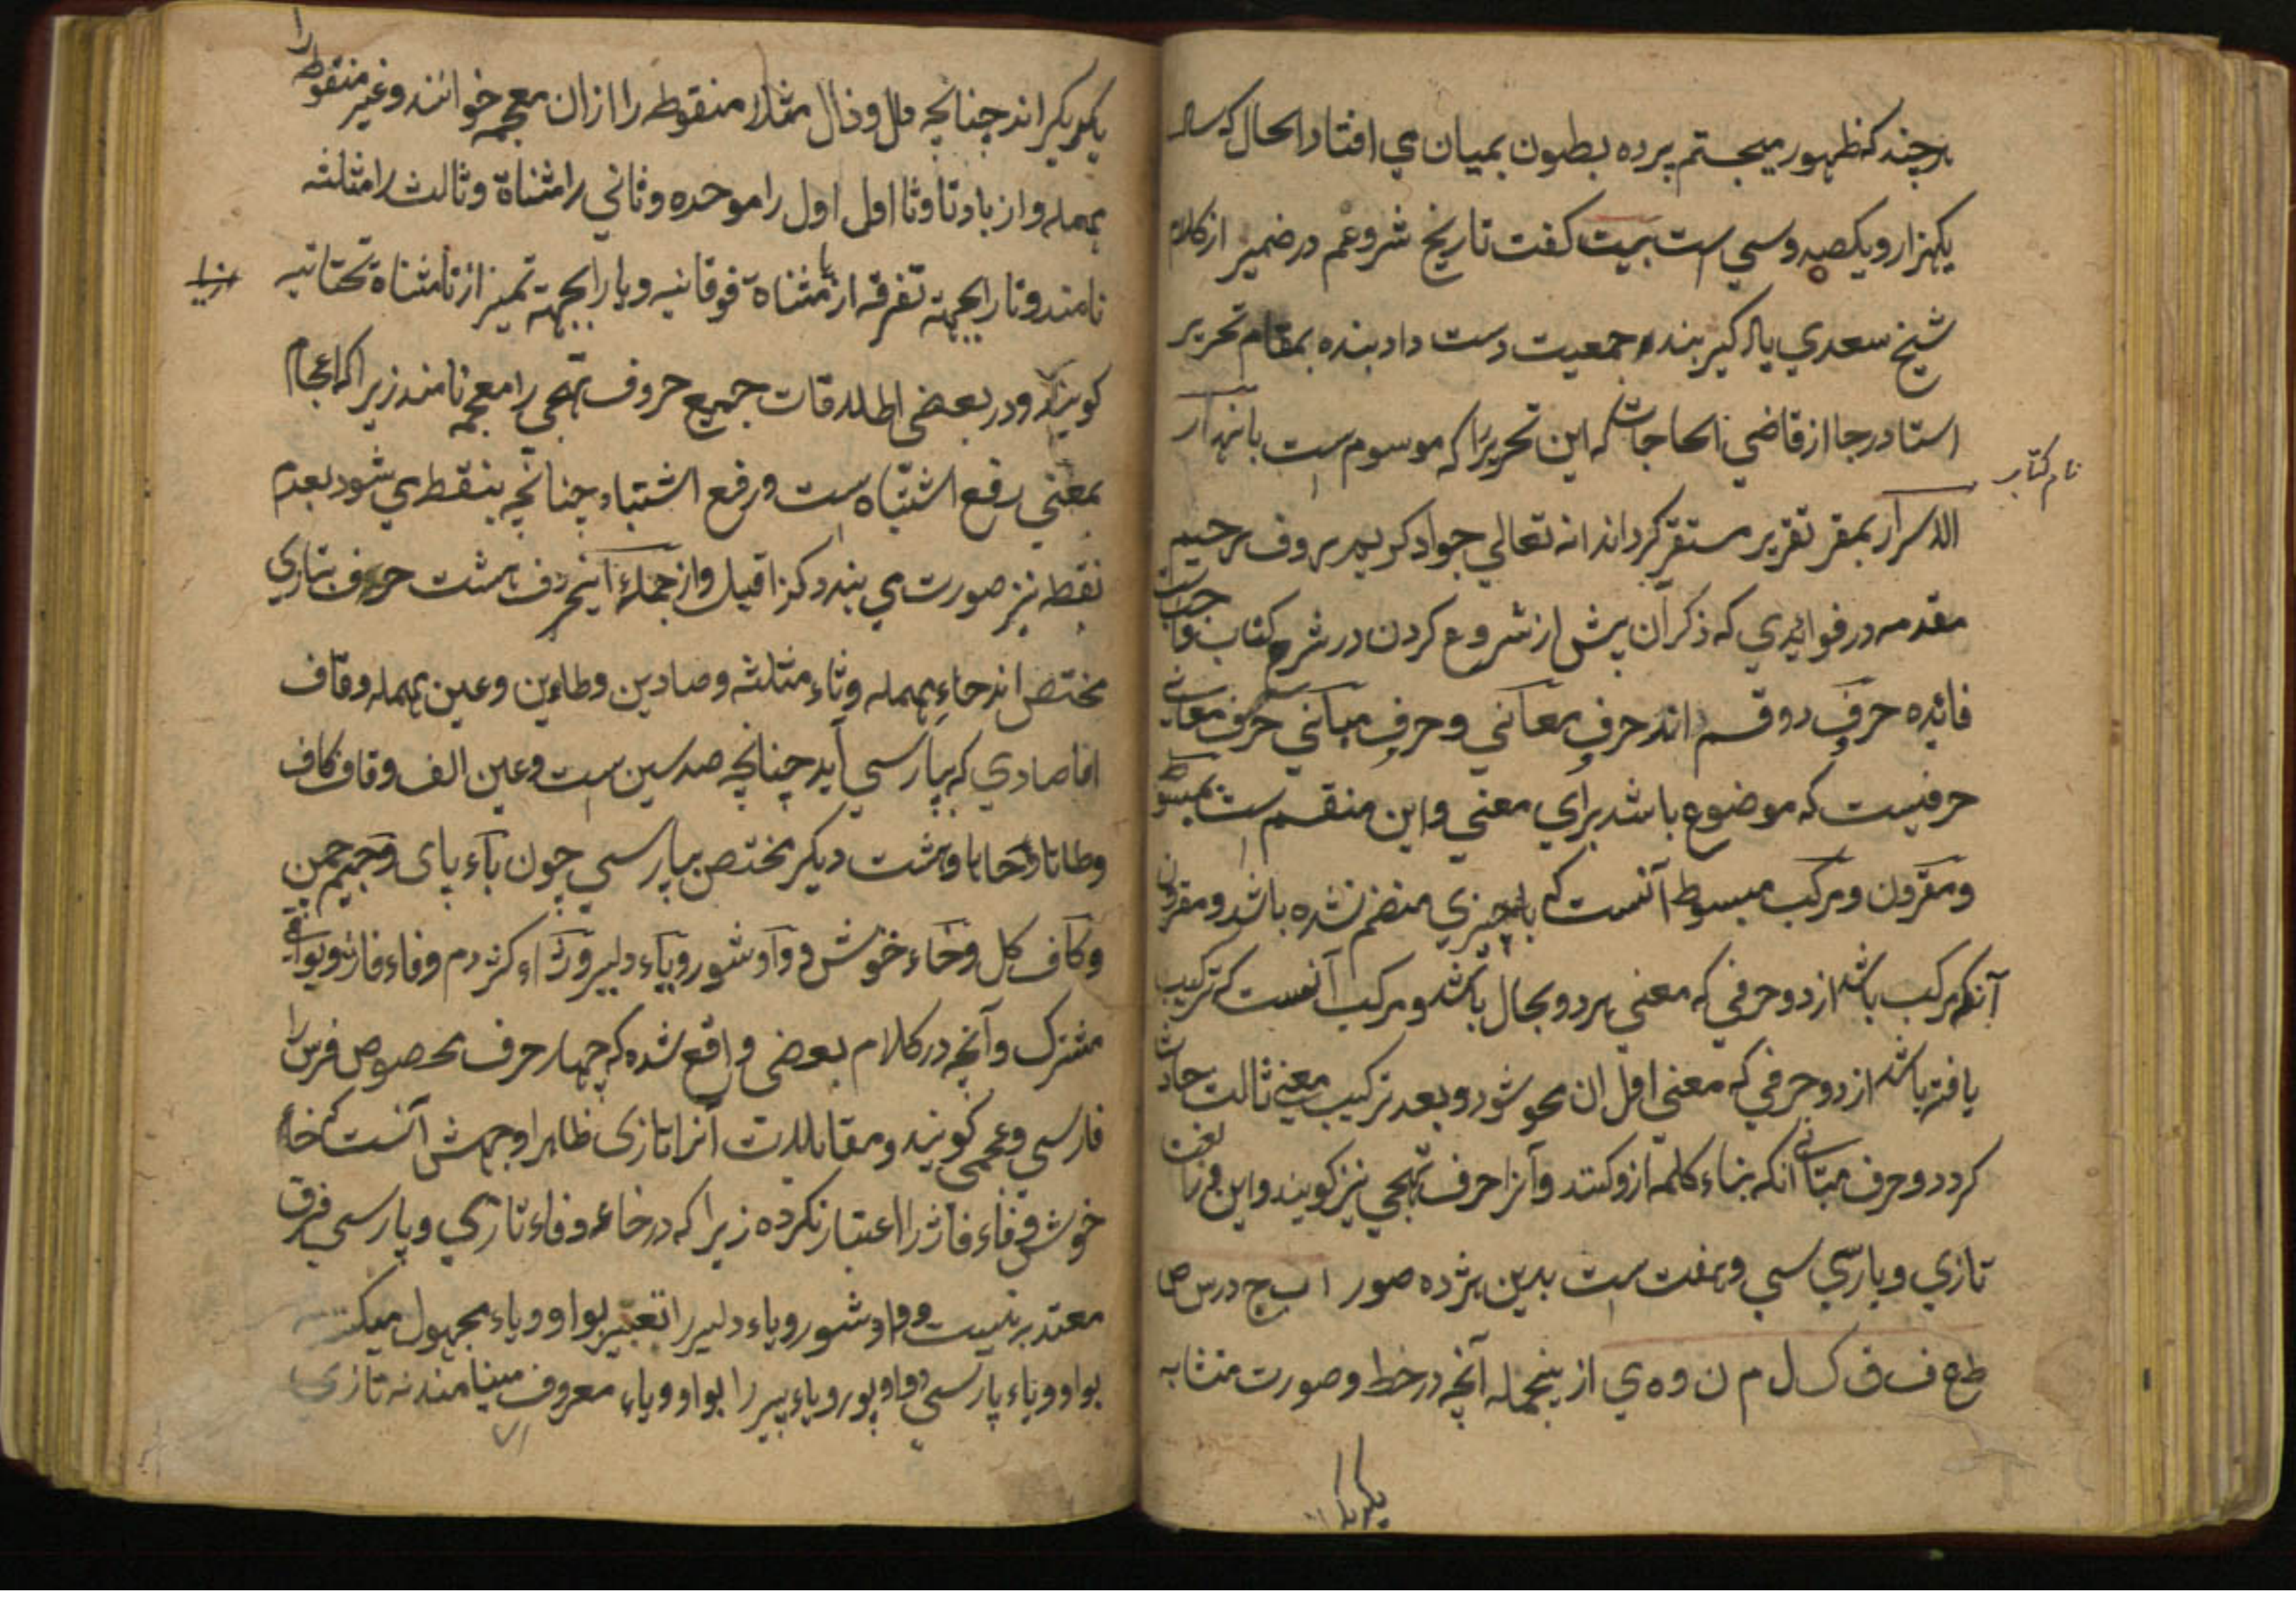 هرچند که ظهور میجستم پرده بطون بمیان می افتاد الحال که سال
یکهزار و یکصد و سی است بیت کفت تاریخ شروعم در ضمیر از کلام
شیخ سعدي یاد کیر بنده جمعیت دست داد بنده بمقام تحریر
استاد رجا از قاضي الحاجات که این تحریر را که موسوم است بانهار
نام کتاب
الاسرار بمقر تقریر مستقر کرداند انه تعالي جواد کریم رءوف رحیم
مقدمه در فوایدي که ذکر آن پیش از شروع کردن در شرح کتاب واجبست
فائده حرف دو قسم اند حرف معاني و حرف مباني حرف معاني
حرفیست که موضوع باشد براي معني و این منقسم است بمبسوط
و مقرون و مرکب مبسوط آنست که باچیزي منضم نشده باشد و مقرون
آنکه مرکب باشد از دو حرفي که معني هر دو بحال باشد و مرکب آنست که ترکیب
یافته باشد از دو حرفي که معني اول ان محو شود و بعد ترکیب معني ثالث حادث
کردد و حرف مباني آنکه بناء کلمه ازو کنند و آنرا حرف تهجي نیز کویند و این در لغت
تازي و پارسي سي و هفت است بدین هژده صور ا ب ج د ر س ص
ط ع ف ق ک ل م ن و ه ي از ینجمله آنچه در خط و صورت متشابه
یکدیکر
یکدیکر اند چنانچه دال و ذال مثلا منقوطه را ازان معجمه خوانند و غیر منقوطه را
مهمله و از با و تا و ثا اول اول را موحده و ثاني را مثناة و ثالث را مثلثه
نامند و تا را بجهة تفرقه از یا مثناة فوقانیه و یا را بجهة تمیز از تا مثناة تحتانیه
کویند و در بعضي اطلاقات جمیع حروف تهجي را معجمه نامند زیرا که اعجام
بمعني رفع اشتباه است و رفع اشتباه چنانچه بنقطه مي شود بعدم
نقطه نیز صورت مي بندد کذا قیل و از جملهٔ اینحروف هشت حرف بتازي
مختص اند حاء مهمله و ثاء مثلثه و صادین و طاءین و عین مهمله و قاف
اما صادي که بپارسي آید چنانچه صد سین است و عین الف و قاف کاف
و طا تا و حا ها و هشت دیکر مختص بپارسي چون پاء پاي و جیم چمن
و کاف کل و خاء خوش و واو شور و یاء دلیر و ژاء کژدم و فاء فاژ و بواقي
مشترک و آنچه در کلام بعضي واقع شده که چهار حرف مخصوص فرس را
فارسي و عجمي کویند و مقابلات آنرا تازي ظاهرا وجهش آنست که خاء
خوش و فاء فاژ را اعتبار نکرده زیرا که در خاء و فاء تازي و پارسي فرق
معتد به نیست و واو شور و یاء دلیر را تعبیر بواو و یاء مجهول میکنند
بواو و یاء پارسي و واو پور و یاء پیر را بواو و یاء معروف مینامند نه تازي